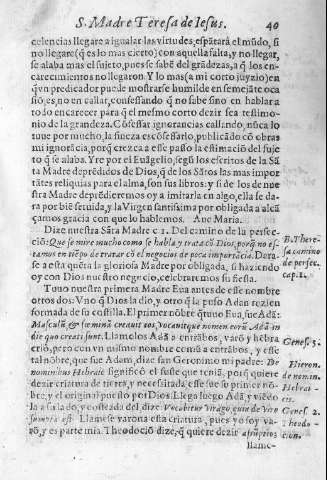 S. Madre Teresa de Iesus. 40
celencias llegare a igualar las virtudes, espãtarà el mũdo, si
no llegare (q̃ es lo mas cierto) con aquella falta, y no llegar,
se alaba mas el sujeto, pues se sabe del grãdezas, a q̃ los en-
carecimientos no llegaron. Y lo mas (a mi corto juyzio) en
qũn predicador puede mostrarse humilde en semejãte oca
siõ, es, no en callar, confessando q̃ no sabe sino en hablar a
todo encarecer para q̃ el mesmo corto dezir sea testimo-
nio de la grandeza. Cõfessar ignorancias callando, nũca lo
tuue por mucho, la fineza es cõfessarlo, publicãdo cõ obras
mi ignorãcia, porq̃ crezca a esse passo la estimaciõ del suje
to q̃ se alaba. Y re por el Euãgelio, segũ los escritos de la Sã
ta Madre deprẽdidos de Dios, q̃ de los Sãtos las mas impor
tãtes reliquias para el alma, son sus libros: y si de los de nue
stra Madre deprẽdieremos oy a imitarla en algo, ella se da-
ra por biẽ seruida, y la Virgen santissima por obligada a alcã
çarnos gracia con que lo hablemos. Aue Maria.
Dize nuestra Sãta Madre c 1. Del camino de la perfec-
ciõ: Que se mire mucho como se habla y trata cõ Dios, porq̃ no es-
tamos en tiẽpo de tratar cõ el negocios de poca importãcia. Dera-
se a esta quẽta la gloriosa Madre por obligada, si haziendo
oy con Dios nuestro negocio, celebraremos su fiesta.
Tuuo nuestra primera Madre Eua antes de esse nombre
otros dos: Vno q̃ Dios la dio, y otro q̃ la puso Adan rezien
formada de su costilla. El primer nõbre q̃ tuuo Eua, fue Adã:
Masculũ & fœminã creauit eos, vocauitque nomen eorũ Adã in
die quo creati sunt. Llamolos Adã a entrãbos, varõ y hẽbra
criò, pero con vn mismo nombre comũ a entrãbos, y este
tal nõbre, que fue Adam, dize san Geronimo mi padre: De
nominibus Hebraic significò el fuste que teniã, porq̃ quiere
dezir criatura de tierra, y necessitada esse fue su primer nõ-
bre, y el original puesto por Dios. Llega luego Adã, y viẽdo
la a su lado, y costeada del, dize: Vocabitur Virago, quia de Viro
sumpta est. Llamese varona esta criatura, pues yo soy va-
rõ, y es parte mia. Theodociõ dize, q̃ quiere dezir assumptio
llame-
B. There-
sa camino
de perfec.
cap. 1.
Genes. 5.
Hieron.
de nomin.
Hebrai-
cis.
Genes. 2.
Theodo-
cion.